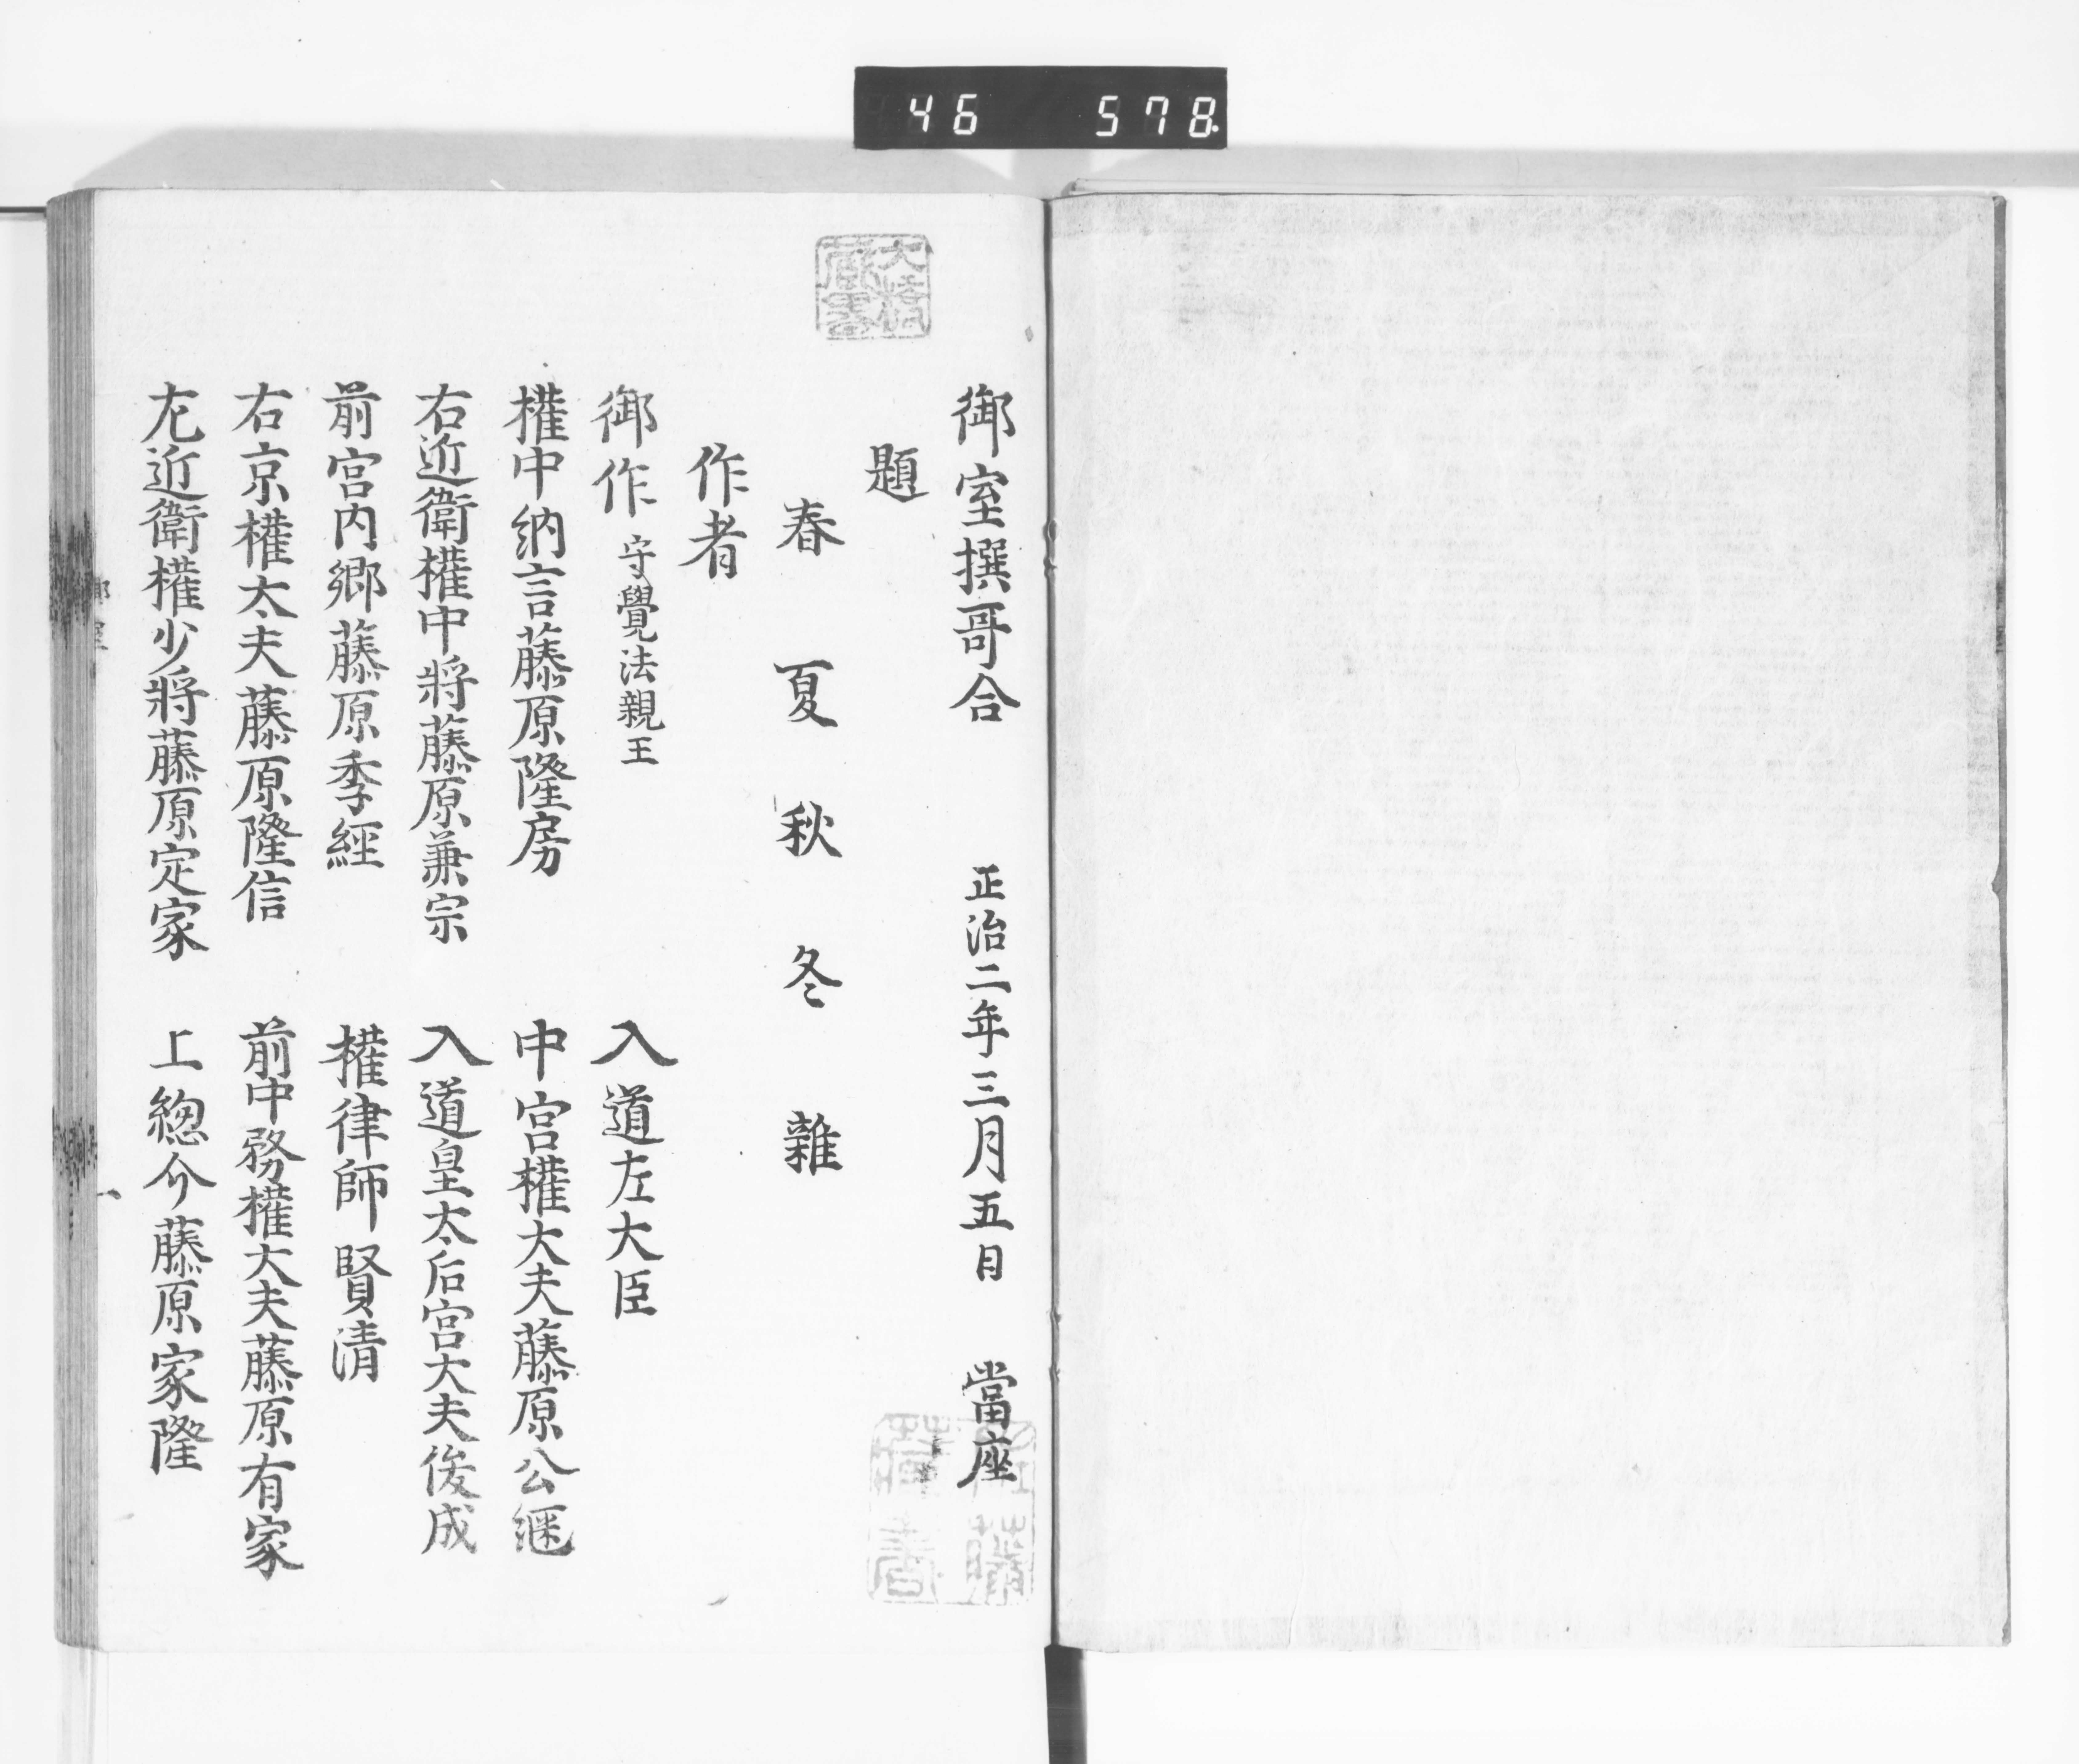 46 578
御室撰哥合 正治二年三月五日 當座
題
春 夏 秋 冬 雜
作者
御作 守覺法親王 入道左大臣
權中納言藤原隆房 中宮權大夫藤原公繼
右近衛權中將藤原兼宗 入道皇太后宮大夫俊成
前宮内卿藤原季經 權律師賢清
右京權太夫藤原隆信 前中務權大夫藤原有家
尢近衛權少將藤原定家 上總介藤原家隆
大橋
藏書
一